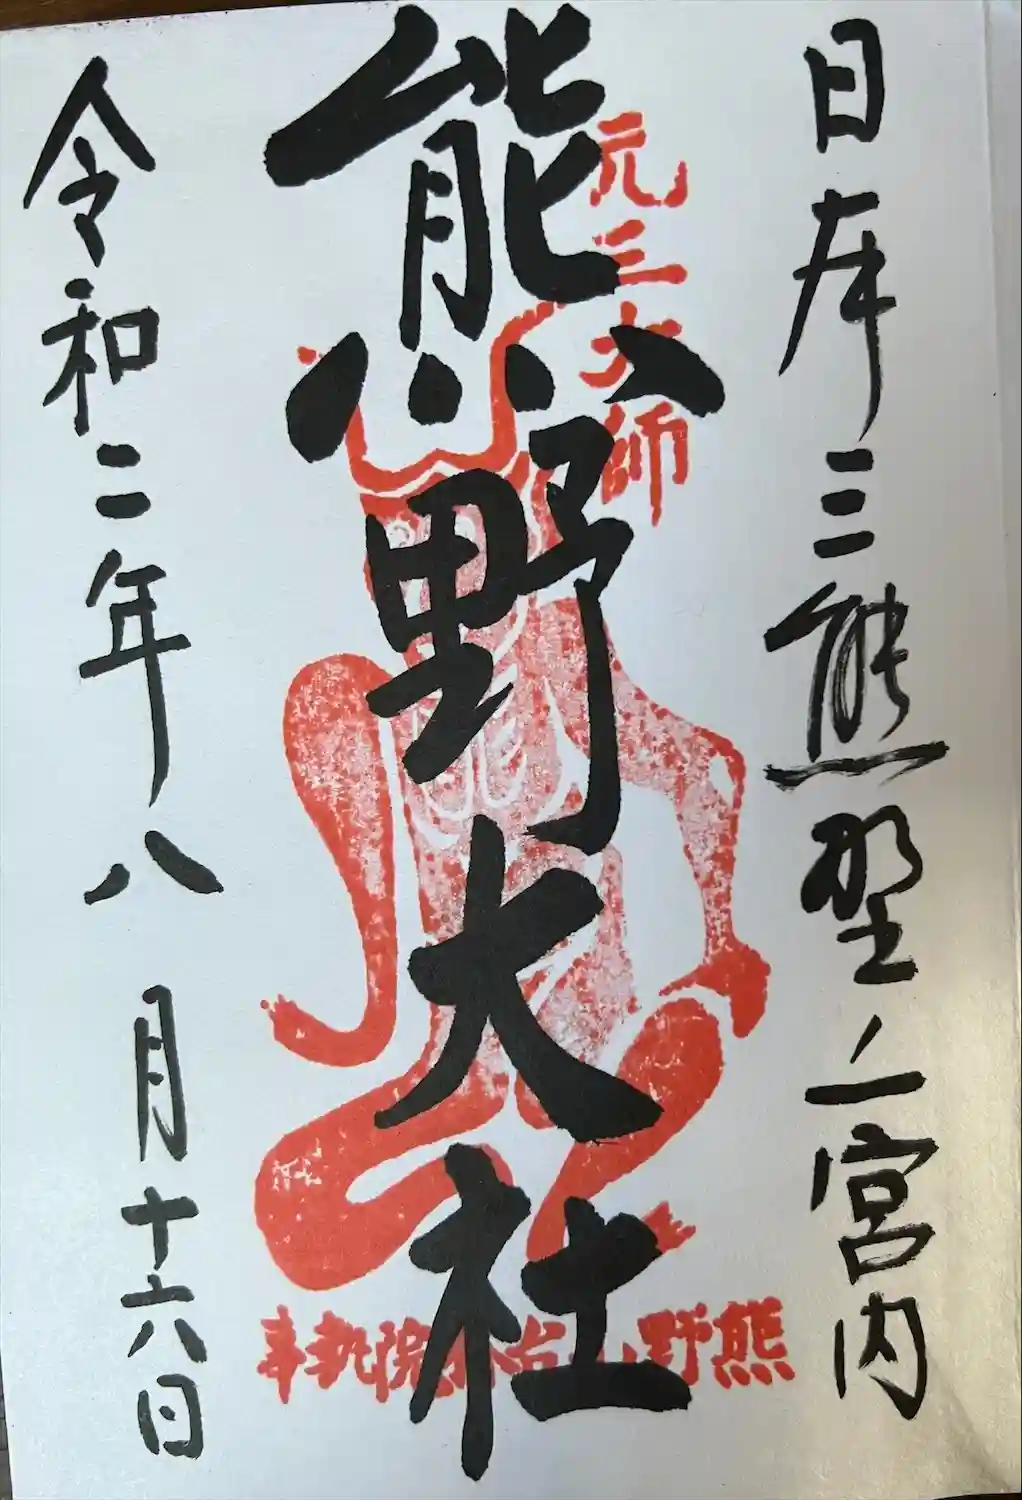 日本三熊野ノ一宮内
元三大師
熊野大社
熊野山
院執事
令和二年八月十六日